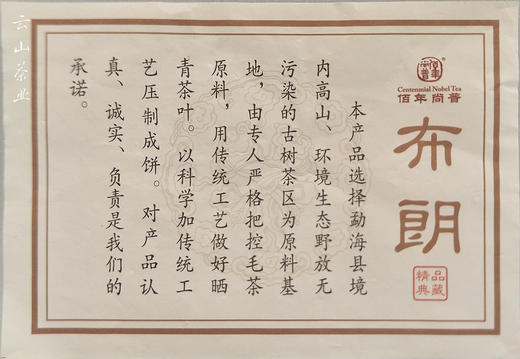 云山茶业
Centennial Nobel Tea
佰年尚普
布朗
品藏
精典
本产品选择勐海县境
内高山、环境生态野放无
污染的古树茶区为原料基
地，由专人严格把控毛茶
原料，用传统工艺做好晒
青茶叶。以科学加传统工
艺压制成饼。对产品认
真、诚实、负责是我们的
承诺。